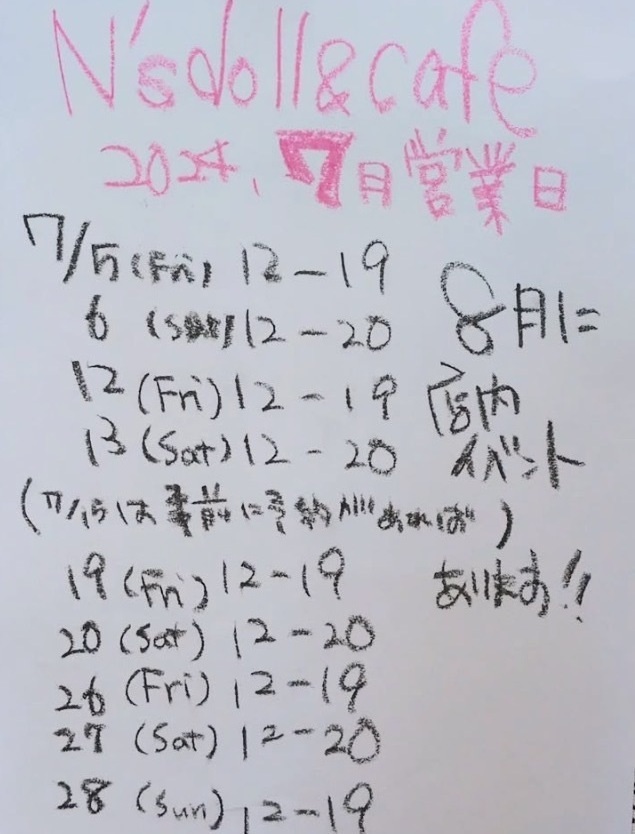 N'sdoll&cafe
2024. 7月営業日
7/5 (Fri) 12-19
6 (Sat) 12-20
12 (Fri) 12-19
13 (Sat) 12-20
(7/15は事前に予約があれば)
19 (Fri) 12-19
20 (Sat) 12-20
26 (Fri) 12-19
27 (Sat) 12-20
28 (Sun) 12-19
8月に
店内
イベント
あります!!